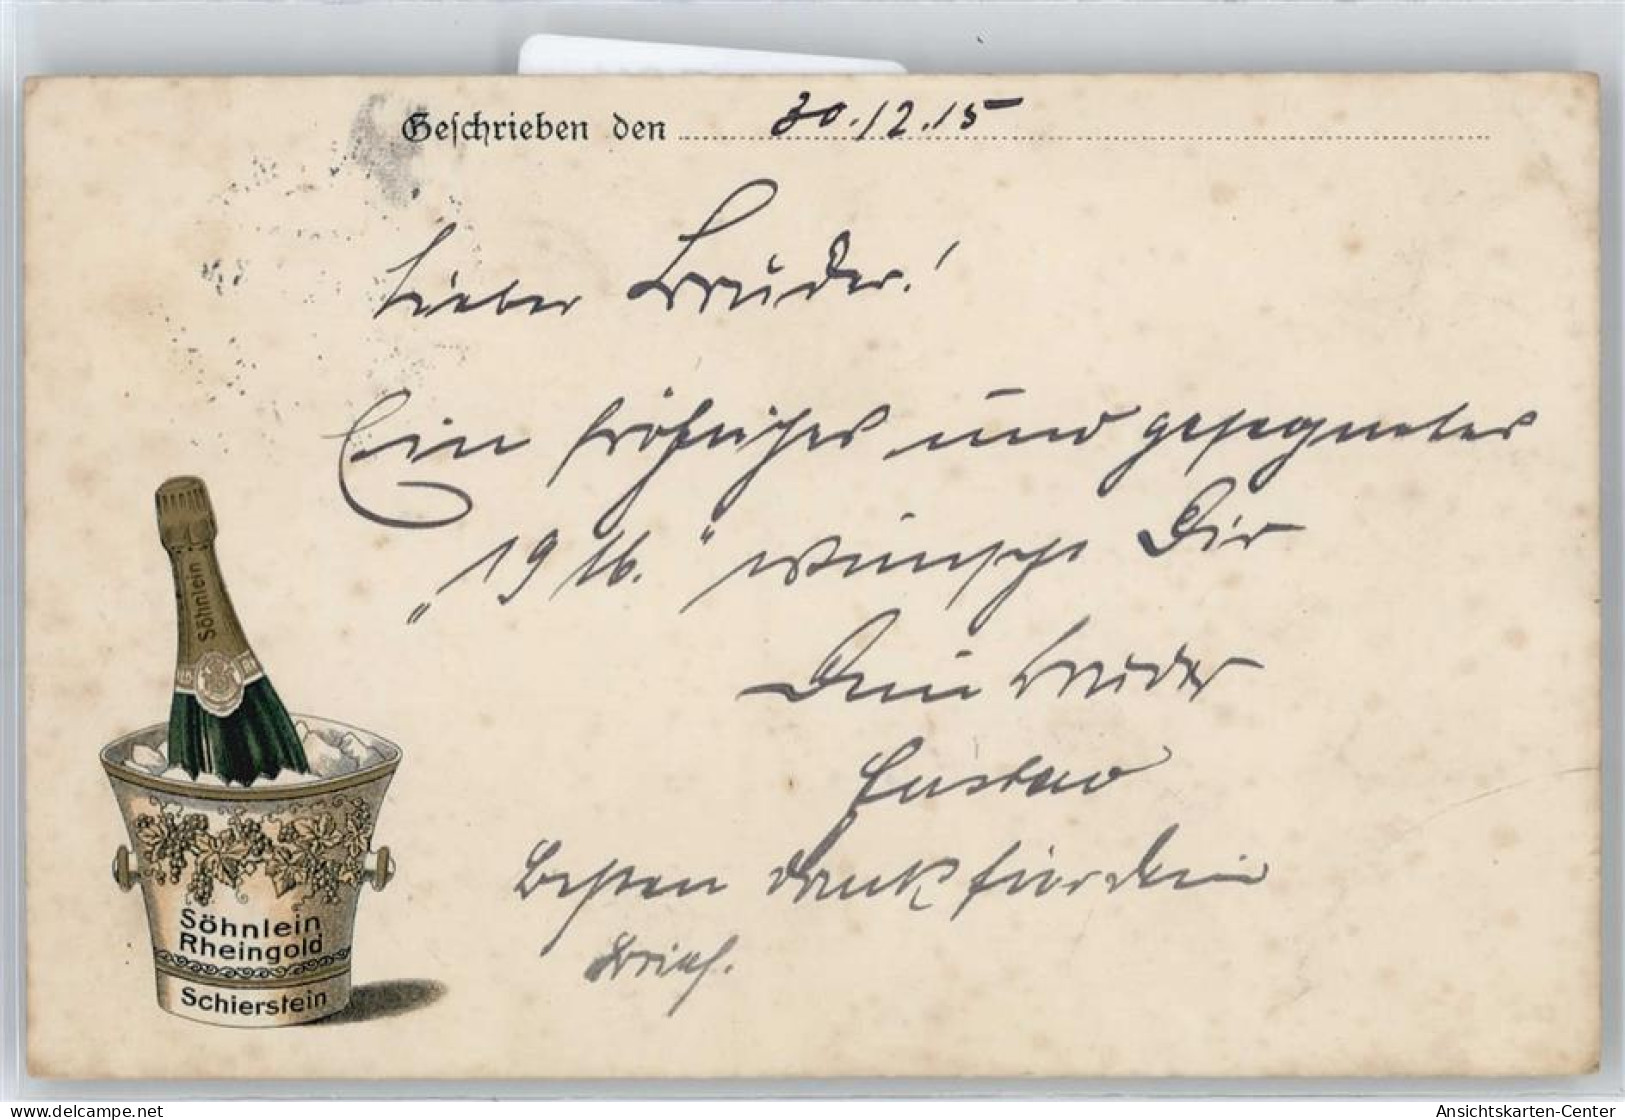 Geschrieben den 30.12.15
Lieber Bruder!
Ein fröhliches und gesegnetes
„1916.“ wünscht Dir
Dein Bruder
Gustav
Besten Dank für dein
Brief.
Söhnlein
Söhnlein
Rheingold
Schierstein
Ansichtskarten-Center